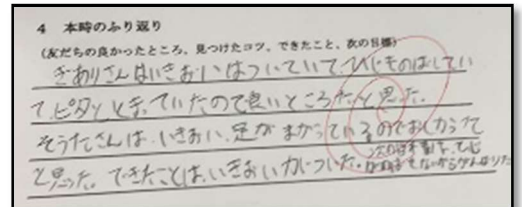 4 本時のふり返り
(友だちの良かったところ、見つけたコツ、できたこと、次の目標)
ぎありさんはいきおいはついていて、ひじものばしてい
て、ピタッととまっていたので良いところだと思った。
そうたさんは、いきおい、足がまがっているのでおしかって
と思った。できたことは、いきおいがついた。